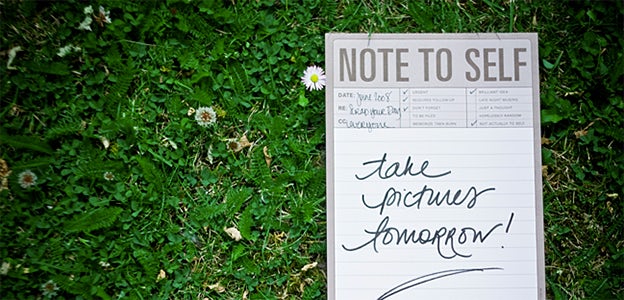 NOTE TO SELF
DATE: June 2008 ✓ URGENT ✓ BRILLIANT IDEA
RE: Snap your Day ✓ REQUIRES FOLLOW-UP LATE NIGHT MUSING
CC: everyone ✓ DON'T FORGET JUST A THOUGHT
TO BE FILED HOPELESSLY RANDOM
MEMORIZE THEN BURN ✓ NOT ACTUALLY TO SELF
take
pictures
tomorrow!